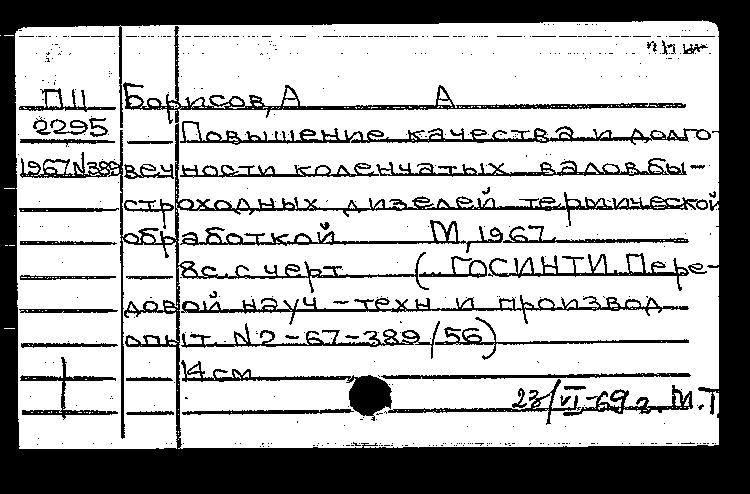 П11 Борисов, А А
2295 Повышение качества и долго-
1967N389 вечности коленчатых валов бы-
строходных дизелей термической
обработкой М, 1967
8с. с черт (... ГОСИНТИ. Пере-
довой науч-техн и производ
опыт. N2-67-389/56)
14 см
23/VI-69 г. М.Т.